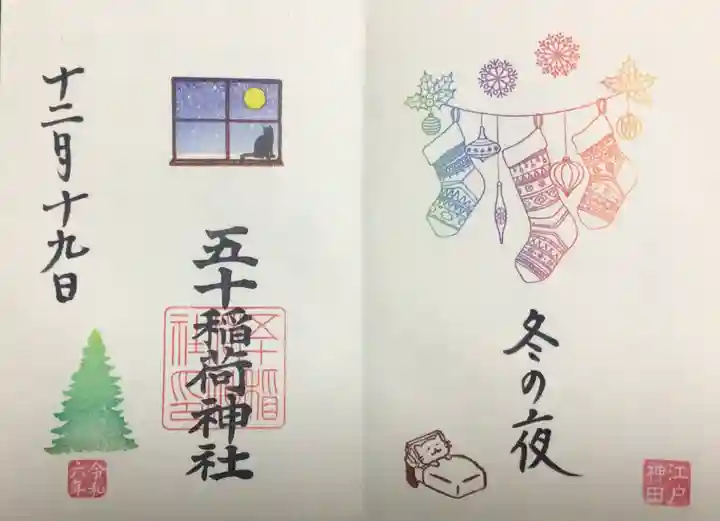 冬の夜
江戸
神田
五十稲荷神社
十二月十九日
令和
六年